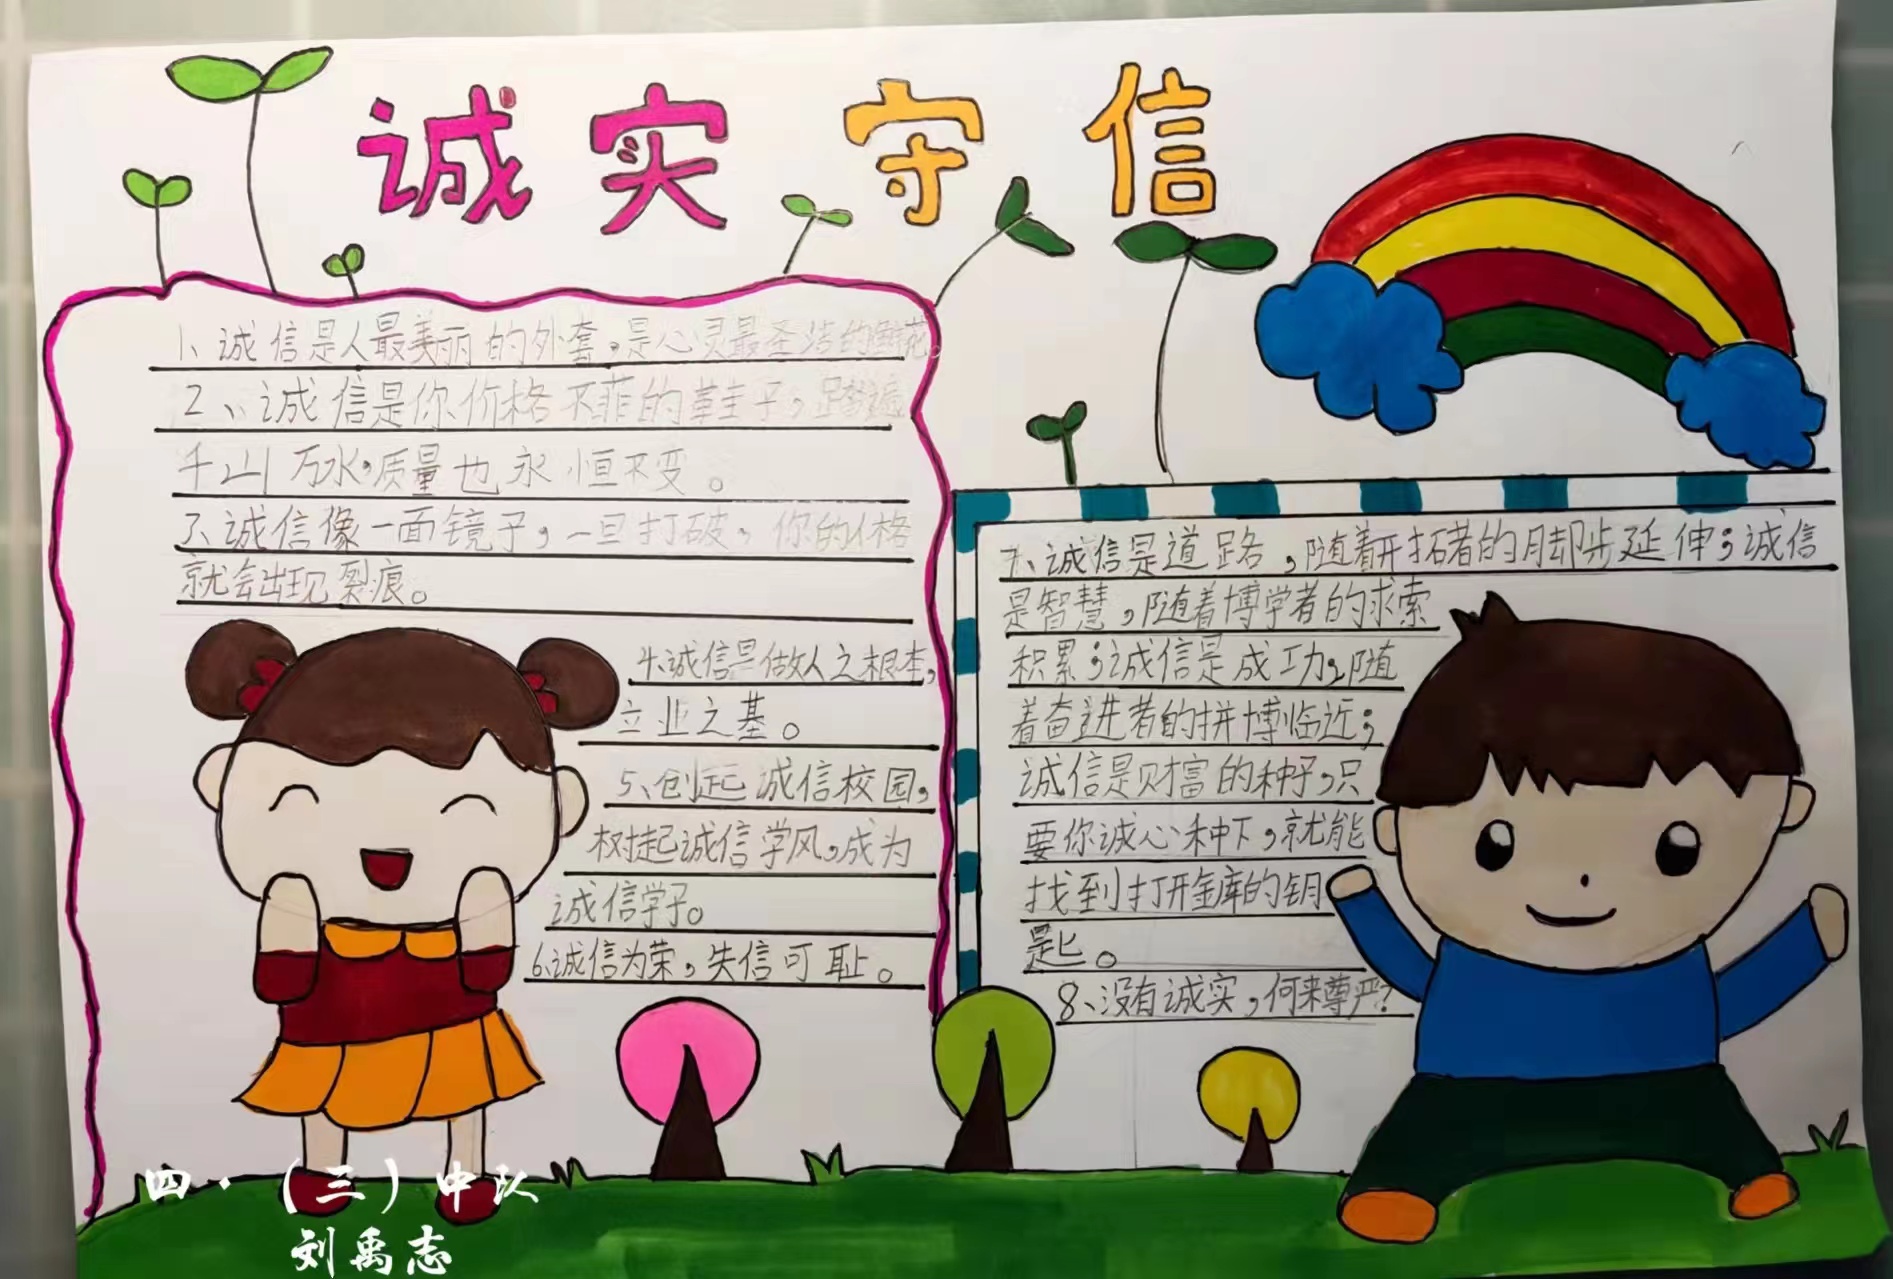 诚实守信
1、诚信是人最美丽的外套，是心灵最圣洁的鲜花。
2、诚信是你价格不菲的鞋子，踏遍
千山万水，质量也永恒不变。
3、诚信像一面镜子，一旦打破，你的人格
就会出现裂痕。
4、诚信是做人之根本，
立业之基。
5、创起诚信校园，
树起诚信学风，成为
诚信学子。
6、诚信为荣，失信可耻。
7、诚信是道路，随着开拓者的脚步延伸；诚信
是智慧，随着博学者的求索
积累；诚信是成功，随
着奋进者的拼博临近；
诚信是财富的种子，只
要你诚心种下，就能
找到打开金库的钥
匙。
8、没有诚实，何来尊严？
四·（三）中队
刘禹志